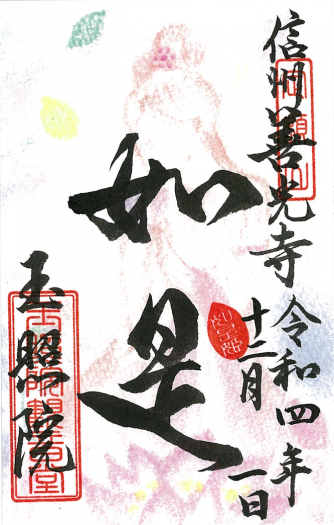 信州善光寺
令和四年
十二月一日
如是
玉照院